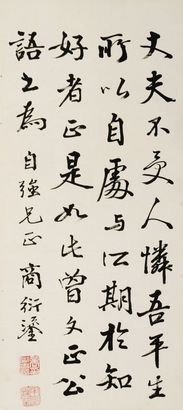 丈夫不受人憐吾平生
所以自處与所期於知
好者正是如此曾文正公
語之為 自強兄正 商衍鎏